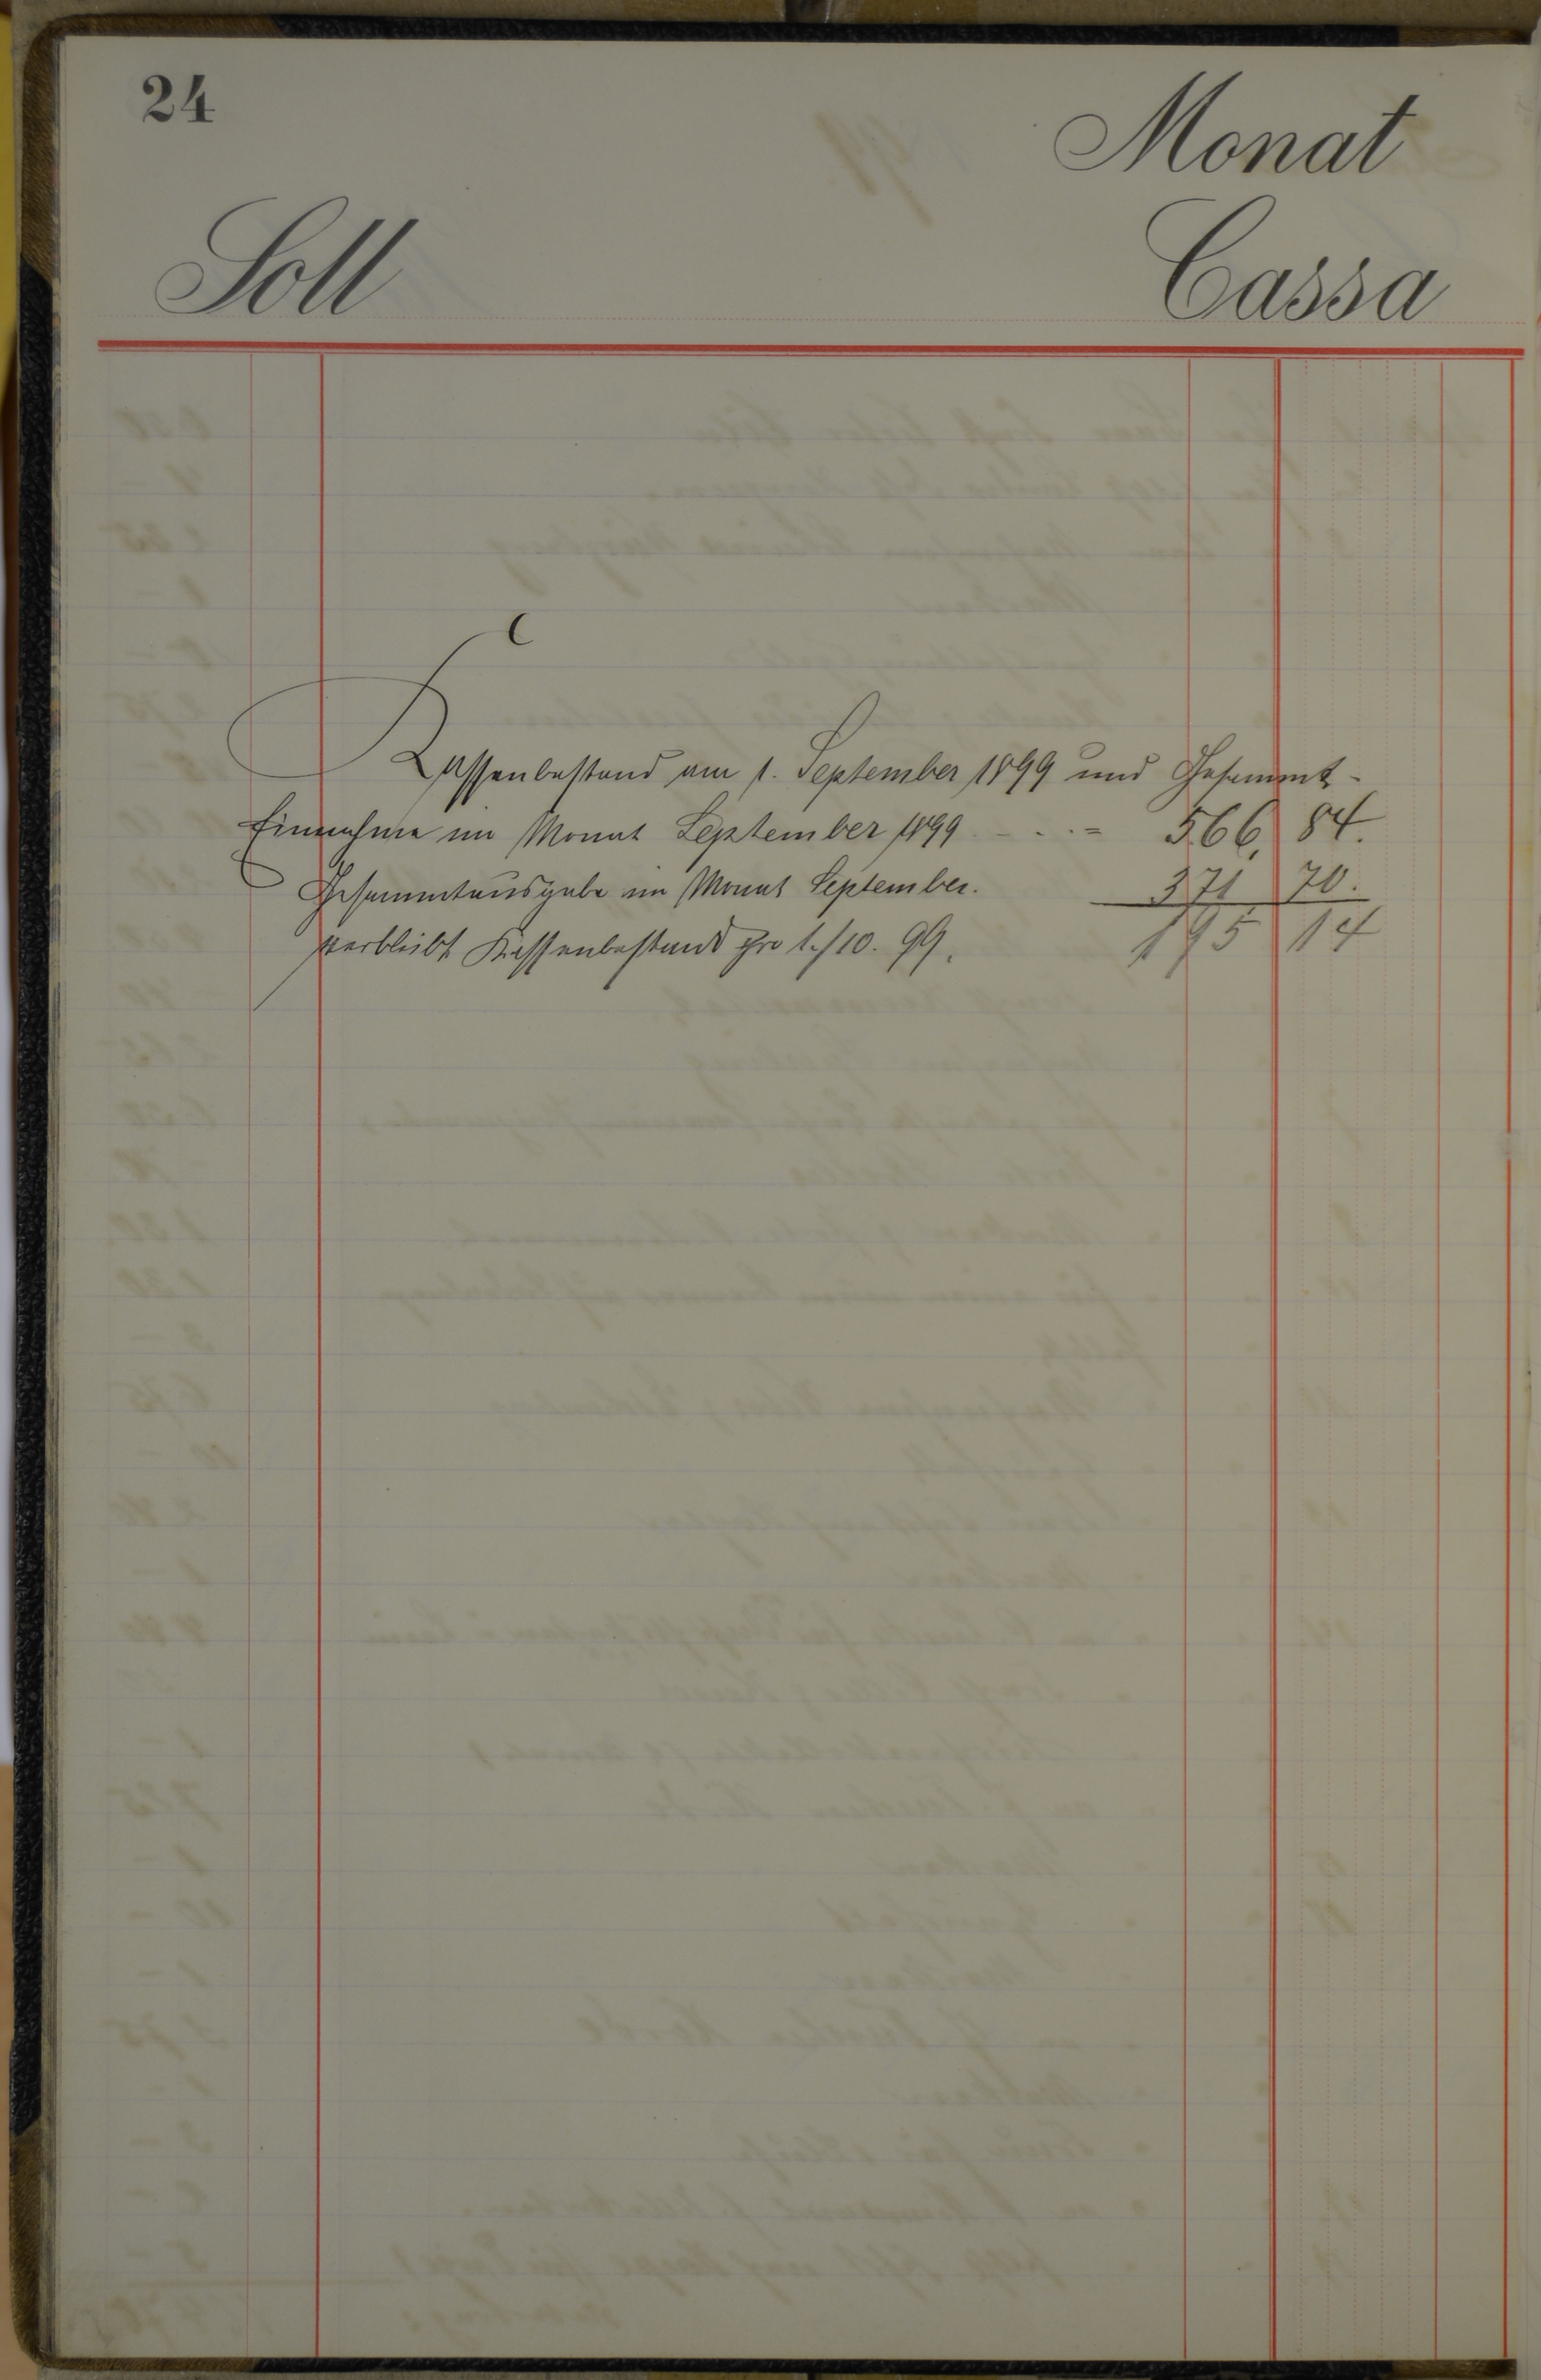 24
Monat
Soll
Cassa
Kassenbestand am 1. September 1899 und Gesammt-
Einnahme im Monat September 1899 - . . = 566, 84.
Gesammtausgabe im Monat September. 371 70.
verbleibt Kassenbestand pro 1./10. 99. 195 14